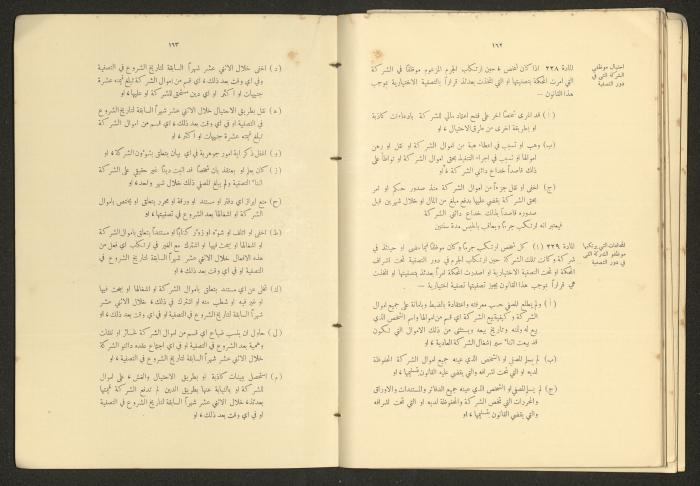 ١٦٢
احتيال موظفي
الشركة التي في
دور التصفية
المادة ٢٣٨ اذا كان شخص ، حين ارتكاب الجرم المزعوم موظفاً في الشركة
التي امرت المحكمة بتصفيتها او التي اتخذت بعدئذ قراراً بالتصفية الاختيارية بموجب
هذا القانون —
(أ) قد اغرى شخصاً آخر على فتح اعتماد مالي للشركة بادعاءات كاذبة
او بطريقة اخرى من طرق الاحتيال ، او
(ب) وهب او تسبب في اعطاء هبة من اموال الشركة او نقل او رهن
اموالها او تسبب في اجراء التنفيذ بحق اموال الشركة او تواطأ على
ذلك قاصداً خداع دائني الشركة ، او
(ج) اخفى او نقل جزءاً من اموال الشركة منذ صدور حكم او امر
بحق الشركة يقضي عليها بدفع مبلغ من المال او خلال شهرين قبل
صدوره قاصداً بذلك خداع دائني الشركة
فيعتبر انه ارتكب جرماً ويعاقب بالحبس مدة سنتين
المخالفات التي يرتكبها
موظفو الشركة التي
في دور التصفية
المادة ٢٣٩ (١) كل شخص ارتكب جرماً وكان موظفاً فيما مضى او حينئذ في
شركة وكانت تلك الشركة حين ارتكاب الجرم في دور التصفية تحت اشراف
المحكمة او تحت التصفية الاختيارية او اصدرت المحكمة امراً بعدئذ بتصفيتها او اتخذت
هي قراراً بموجب هذا القانون يجيز تصفيتها تصفية اختيارية —
(أ) ولم يطلع المصفي حسب معرفته واعتقاده بالضبط وبامانة على جميع اموال
الشركة وكيفية بيع الشركة اي قسم من اموالها واسم الشخص الذي
بيع له وثمنه وتاريخ بيعه ويستثنى من ذلك الاموال التي تكون
قد بيعت اثناء سير اشغال الشركة العادية ، او
(ب) لم يسلم المصفي او الشخص الذي عينه جميع اموال الشركة المحفوظة
لديه او التي تحت اشرافه والتي يقضي عليه القانون بتسليمها ، او
(ج) لم يسلم المصفي او الشخص الذي عينه جميع الدفاتر والمستندات والاوراق
والمحررات التي تخص الشركة والمحفوظة لديه او التي تحت اشرافه
والتي يقضي القانون بتسليمها ، او
١٦٣
(د) اخفى خلال الاثني عشر شهراً السابقة لتاريخ الشروع في التصفية
او في اي وقت بعد ذلك ، اي قسم من اموال الشركة تبلغ قيمته عشرة
جنيهات او اكثر او اي دين مستحق للشركة او عليها ، او
(ه) نقل بطريق الاحتيال خلال الاثني عشر شهراً السابقة لتاريخ الشروع
في التصفية او في اي وقت بعد ذلك ، اي قسم من اموال الشركة
تبلغ قيمته عشرة جنيهات او اكثر ، او
(و) اغفل ذكر اية امور جوهرية في اي بيان يتعلق بشؤون الشركة ، او
(ز) كان يعلم او يعتقد بان شخصاً قد اثبت ديناً غير حقيقي على الشركة
اثناء التصفية ولم يبلغ المصفي ذلك خلال شهر واحد ، او
(ح) منع ابراز اي دفتر او مستند او ورقة او محرر يتعلق او يختص باموال
الشركة او اشغالها بعد الشروع في تصفيتها ، او
(ط) اخفى او اتلف او شوه او زور كتاباً او مستنداً يتعلق باموال الشركة
او اشغالها او يبحث فيها او اشترك مع الغير في ارتكاب اي فعل من
هذه الافعال خلال الاثني عشر شهراً السابقة لتاريخ الشروع في
التصفية او في اي وقت بعد ذلك ، او
(ك) تخلى عن اي مستند يتعلق باموال الشركة او اشغالها او يبحث فيها
او غير فيه او شطب منه او اشترك في ذلك ، خلال الاثني عشر
شهراً السابقة لتاريخ الشروع في التصفية او في اي وقت بعد ذلك ، او
(ل) حاول ان ينسب ضياع اي قسم من اموال الشركة لخسائر او نفقات
وهمية بعد الشروع في التصفية او في اي اجتماع عقده دائنو الشركة
خلال الاثني عشر شهراً السابقة لتاريخ الشروع في التصفية ، او
(م) استحصل ببينات كاذبة او بطريق الاحتيال والغش ، على اموال
للشركة او بالنيابة عنها بطريق الدين لم تدفع الشركة قيمتها
بعدئذ ، خلال الاثني عشر شهراً السابقة لتاريخ الشروع في التصفية
او في اي وقت بعد ذلك ، او